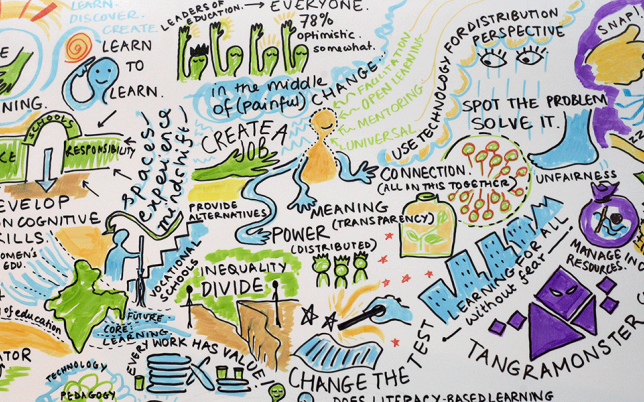 LEARN.
DISCOVER.
CREATE.
LEARN
TO
LEARN.
LEADERS OF
EDUCATION. → EVERYONE.
78%
optimistic.
somewhat.
in the middle
of (painful) CHANGE...
FACILITATION
OPEN LEARNING
MENTORING
UNIVERSAL
USE TECHNOLOGY FOR DISTRIBUTION
PERSPECTIVE
SNAP!
SPOT THE PROBLEM
SOLVE IT.
UNFAIRNESS
NING.
SCHOOLS
CE
RESPONSIBILITY
spaces/
experience
mindshift/
CREATE A
JOB
PROVIDE
ALTERNATIVES
CONNECTION.
(ALL IN THIS TOGETHER)
MEANING
(TRANSPARENCY)
POWER
(DISTRIBUTED)
EVELOP
ON COGNITIVE
KILLS
OMEN'S
EDU.
VOCATIONAL
SCHOOLS
INEQUALITY
DIVIDE
LEARNING FOR ALL
without fear
MANAGE
RESOURCES.
INC
TANGRAMONSTER
of education
FUTURE
CORE
LEARNING.
EVERY WORK HAS VALUE!
ATOR
TECHNOLOGY
PEDAGOGY
CHANGE THE TEST
DOES LITERACY-BASED LEARNING